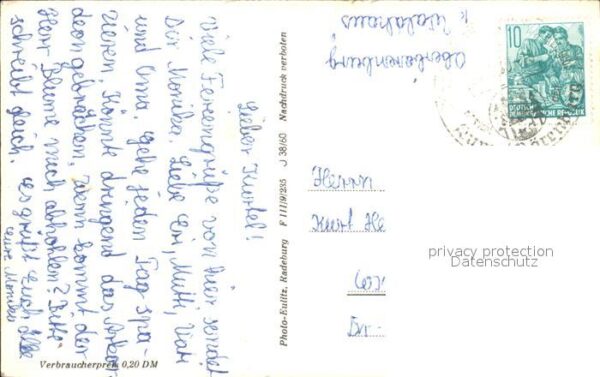 Lieber Kurtel!
Viele Feriengrüße von hier, sendet
Dir Monika. Liebe Eri, Mutti, Vati
und Oma, gehe jeden Tag spa-
zieren. Könnte dringend das Akkor-
deon gebrauchen, wenn kommt der
Herr Blaume mich abholen? Bitte
schreibt gleich. es grüßt Euch alle
eure Monika
Verbraucherpreis 0,20 DM
Photo-Eulitz, Radeburg F III/9/235 J 38/60 Nachdruck verboten
Oberbärenburg
Waldhaus
10
DEUTSCHE
DEMOKRATISCHE REPUBLIK
Herrn
Kurt He
privacy protection
Datenschutz